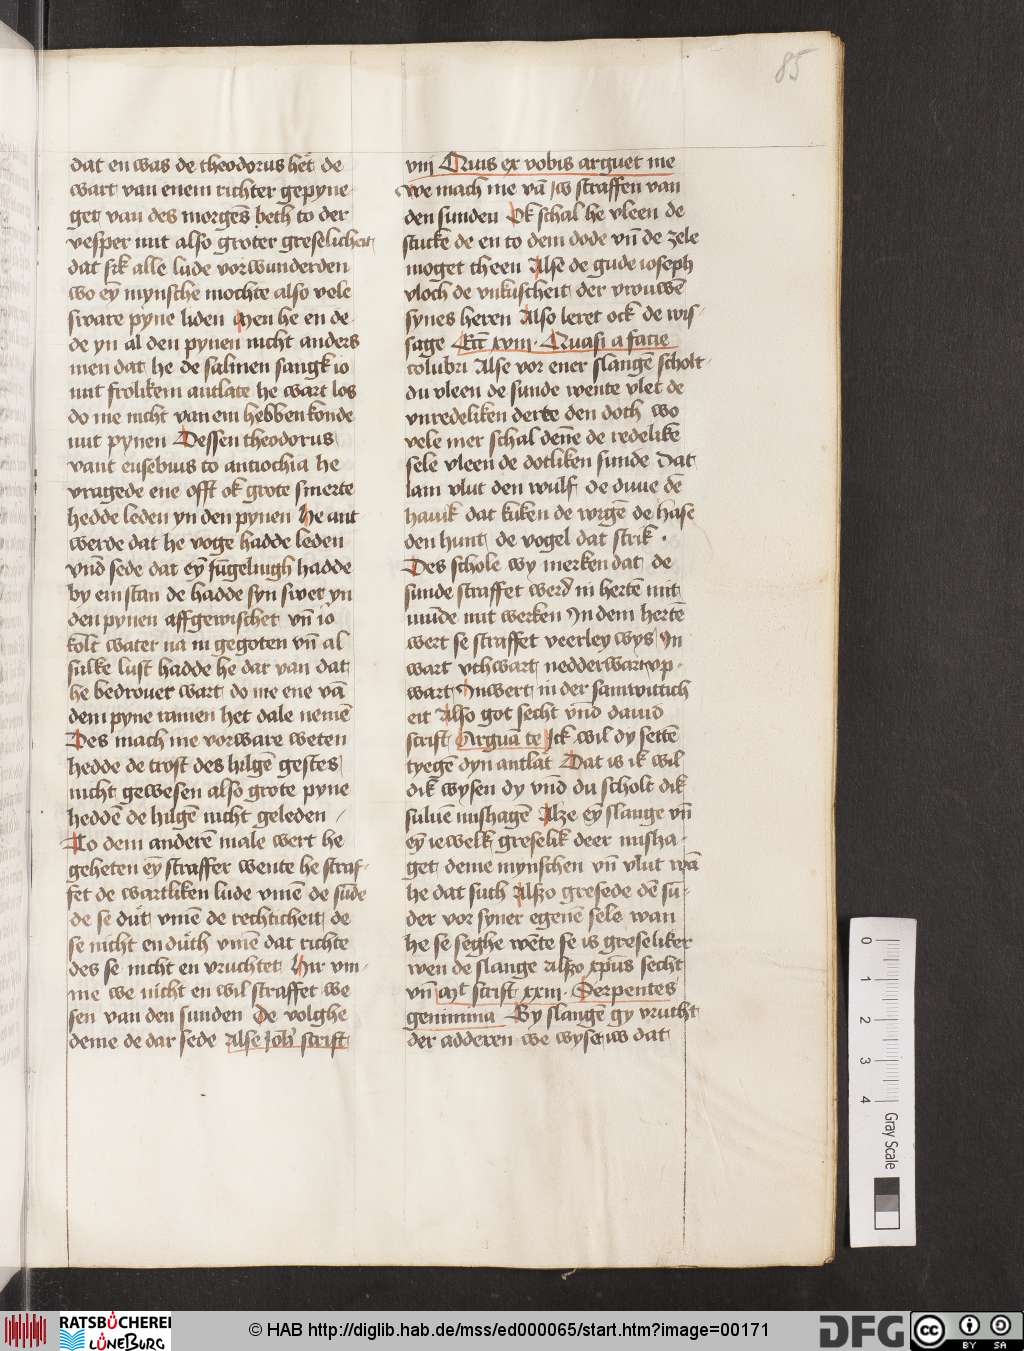 85
dat en was de theodorus het de
wart van enem richter gepyne-
get van des morgēs beth to der
vesper mit also groter greselicheit
dat sik alle lude vorwunderden
wo eȳ mynsche mochte also vele
sware pyne liden Men he en de-
de yn al den pynen nicht anders
men dat he de salmen sangk io
mit frolikem antlate he wart los
do me nicht van em hebben konde
mit pynen Dessen theodorus
vant eusebius to antiochia he
vragede ene offt ok grote smerte
hedde leden yn den pynen He ant
werde dat he voge hadde leden
vnd sede dat eȳ iūgelingh hadde
by em stan de hadde syn swet yn
den pynen affgewischet vn̄ io
kolt water na in gegoten vn̄ al
sulke lust hadde he dar van dat
he bedrouet wart do me ene vā
dem pyne ramen het dale nemē
Des mach me vorware weten
hedde de trost des hilgē gestes
nicht gewesen also grote pyne
heddē de hilgē nicht geleden /
To dem anderē male wert he
geheten eȳ straffer wente he straf-
fet de wartliken lude vmē de sūde
de se dūt vmē de rechticheit de
se nicht en dūth vmē dat richte
des se nicht en vruchtet Hir vm-
me we nicht en wil straffet we
sen van den sunden De volghe
deme de dar sede Alse Joh̄ scrift
viij Quis ex vobis arguet me
we mach me vā iw straffen van
den sunden Ok schal he vleen de
stucke de en to dem dode vn̄ de zele
moget theen Alse de gude ioseph
vloch de vnkuscheit der vrouwē
synes heren Also leret ock de wis-
sage Ecc̄ xviij · Quasi a facie
colubri Alse vor ener slangē scholt-
du vleen de sunde wente vlet de
vnredeliken derte den doch wo
vele mer schal dēne de redelikē
sele vleen de dotliken sunde Dat
lam vlut den wulf de duue dē
hauik dat kuken de wigē de hase
den hunt de vogel dat strik ·
Des schole wy merken dat de
sunde straffet werd̄ in hertē mit
mūde mit werken In dem hertē
wert se straffet veerley wys In
wart vthwart nedderwart vp-
wart Inwert in der samwittich
eit Also got secht vnd dauid
scrift Arguā te Ick wil dy settē
tyegē dyn antlāt Dat is ik wil
dik wysen dy vnd du scholt dik
suluē mishagē Alze eȳ slange vn̄
eȳ iewelk greselik deer misha-
get deme mynschen vn̄ vlut wā
he dat suth Alzo gresede dē sū-
der vor syner egenē sele wan
he se seghe wēte se is greseliker
wen de slange Alzo xp̄us secht
vn̄ Mt̄ scrift xxiij · Serpentes
genimina By slange gy vrucht
der adderen we wyset iw dat
Gray Scale
0 1 2 3 4
RATSBÜCHEREI
LÜNEBURG
© HAB http://diglib.hab.de/mss/ed000065/start.htm?image=00171
DFG
cc BY SA